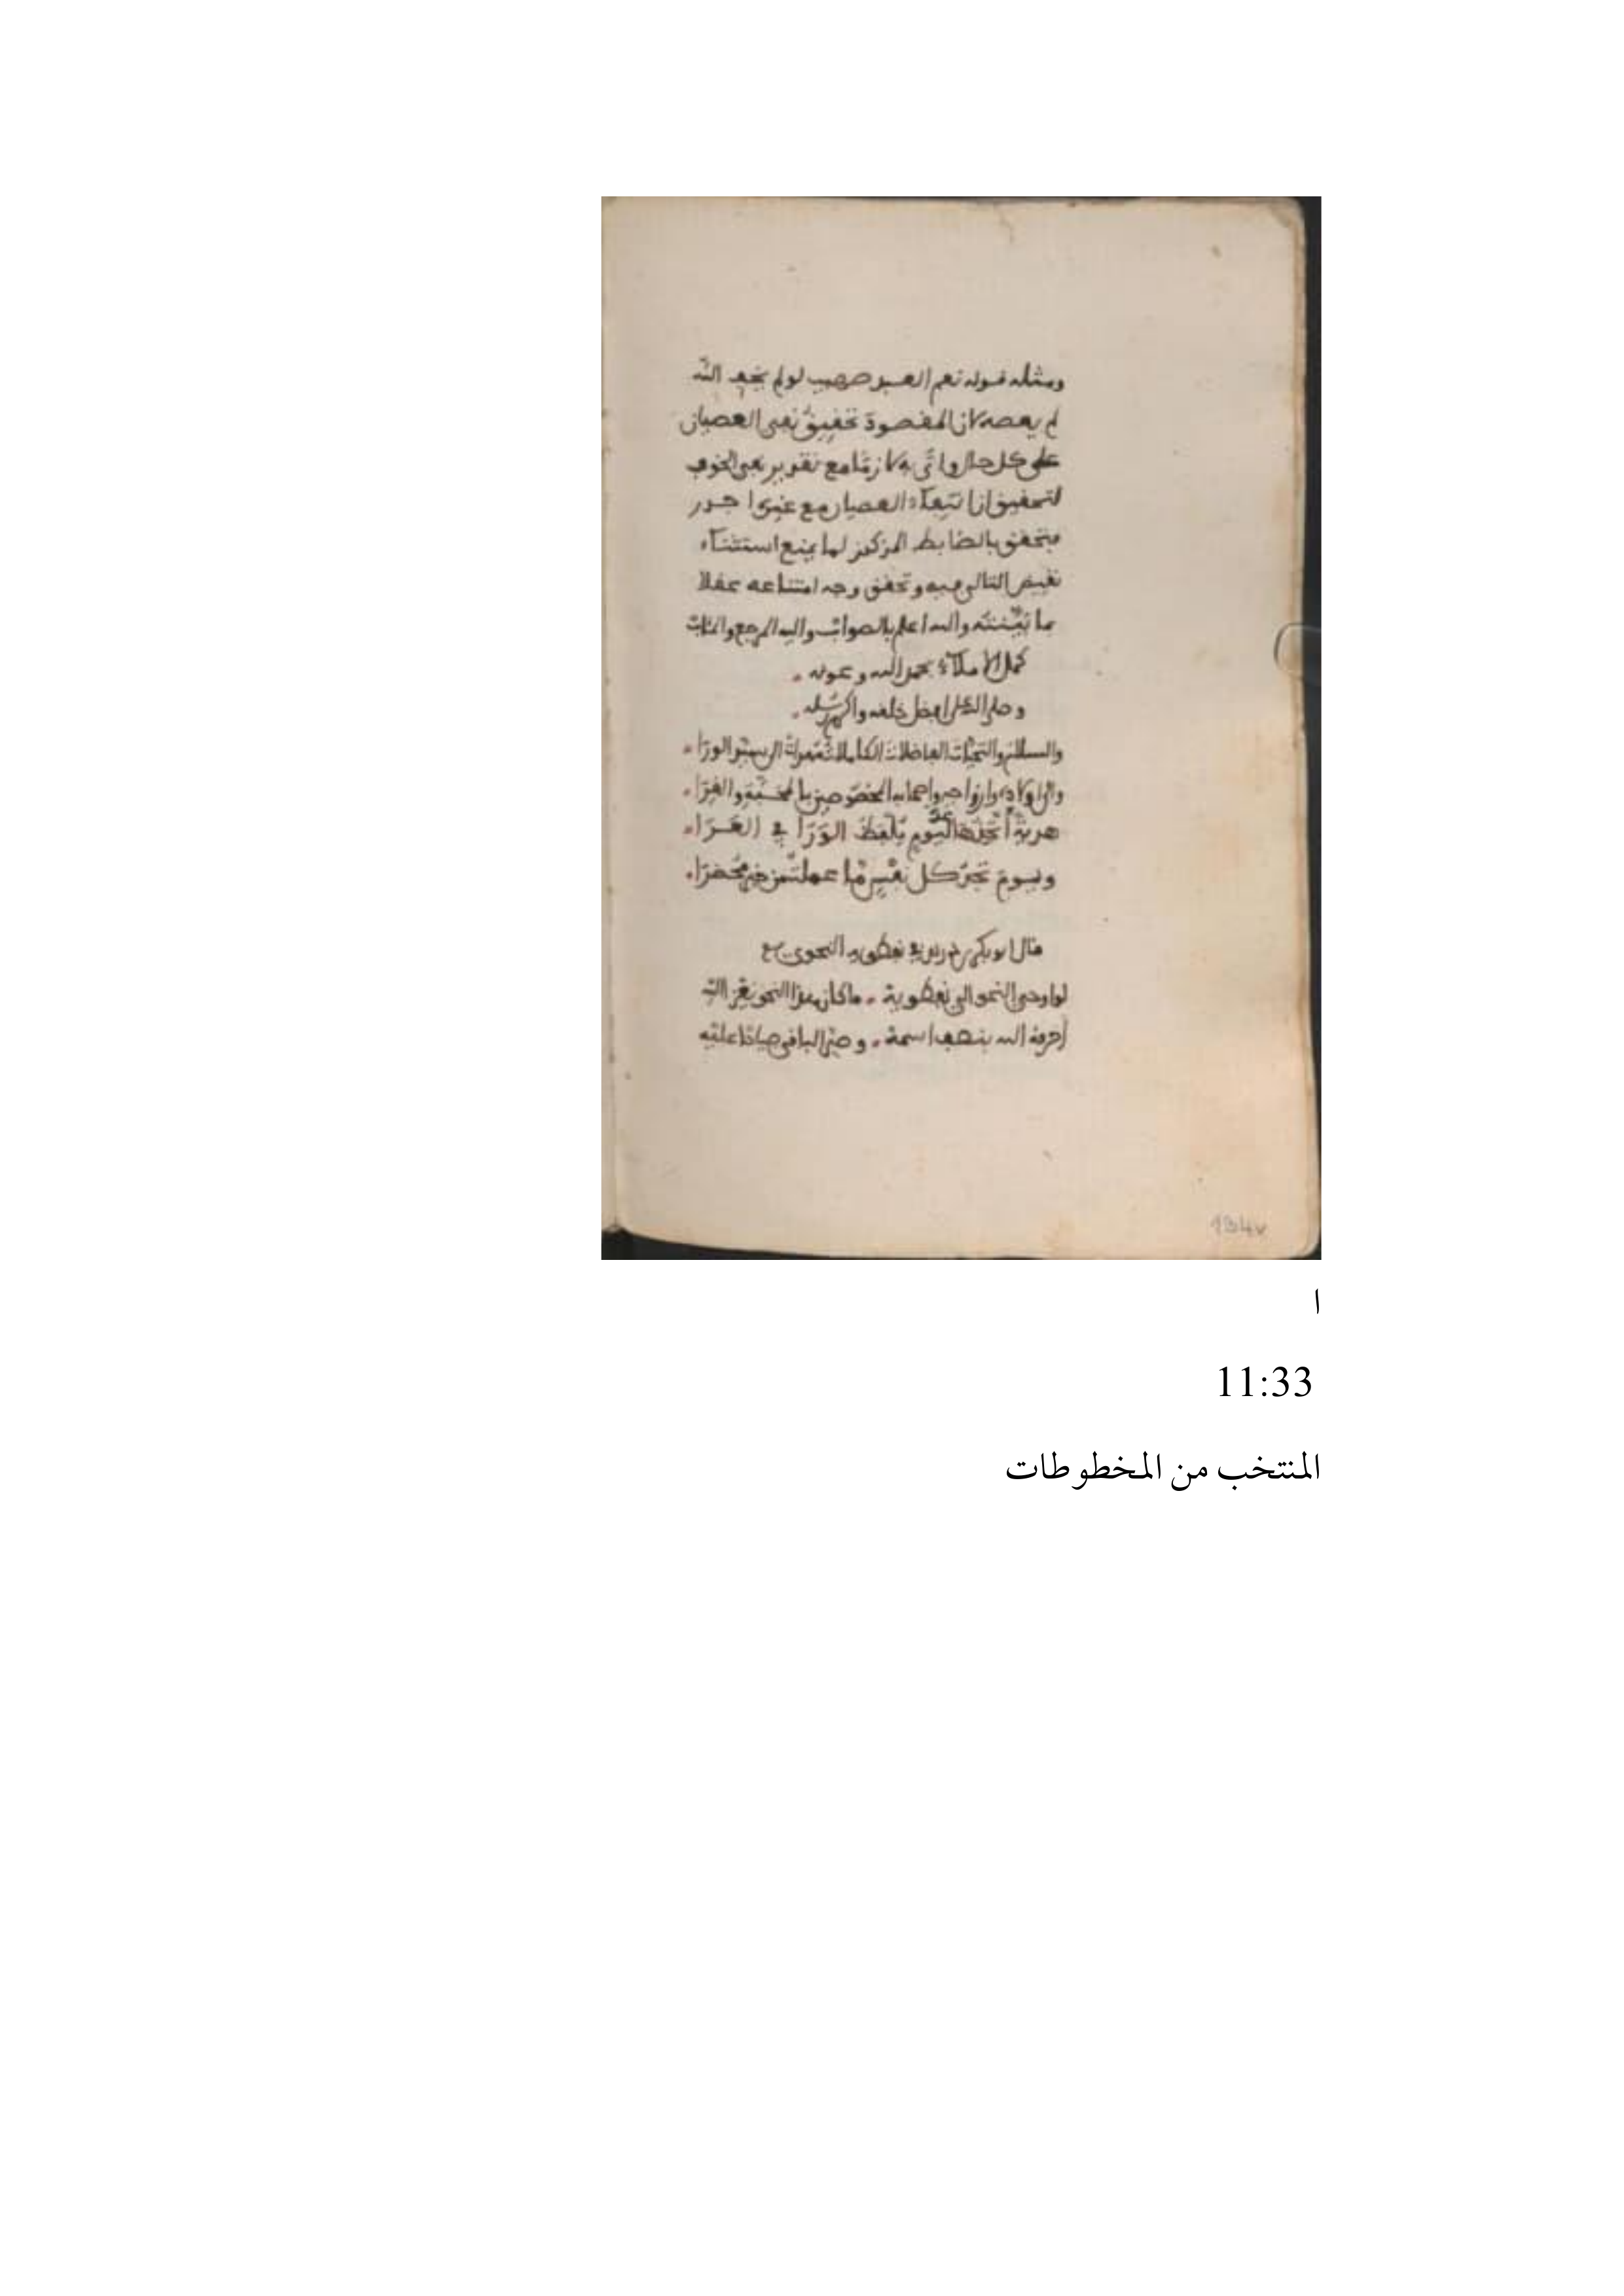 ومثله قوله نعم العبد صهيب لو لم يخف الله
لم يعصه لان المقصود تحقيق نفي العصيان
على كل حال واتى به لازما مع تقدير نفي الخوف
لتحقيق ان انتفاء العصيان مع غيره اجدر
فتحقق بالضابط المذكور لما يمنع استثناء
نقيض التالي فيه وتحقق وجه امتناعه عقلا
بما بينته والله اعلم بالصواب واليه المرجع والمئاب
كمل الاملاء بحمد الله وعونه
وصلى الله على افضل خلقه واكرم رسله
والسلام والتحيات الفاضلات الكاملات إلى سيد الورا
وازواجه واصحابه المخصوصين
هدية اليوم بلفظ الورا في
ويوم تجد كل نفس ما عملت من خير محضرا
قال ابو بكر بن دريد في نفطويه النحوي
لو اوحي النحو الى نفطويه ما كان هذا النحو يقرا اليه
احرقه الله بنصف اسمه وصير الباقي صياحا عليه
134v
ا
11:33
المنتخب من المخطوطات